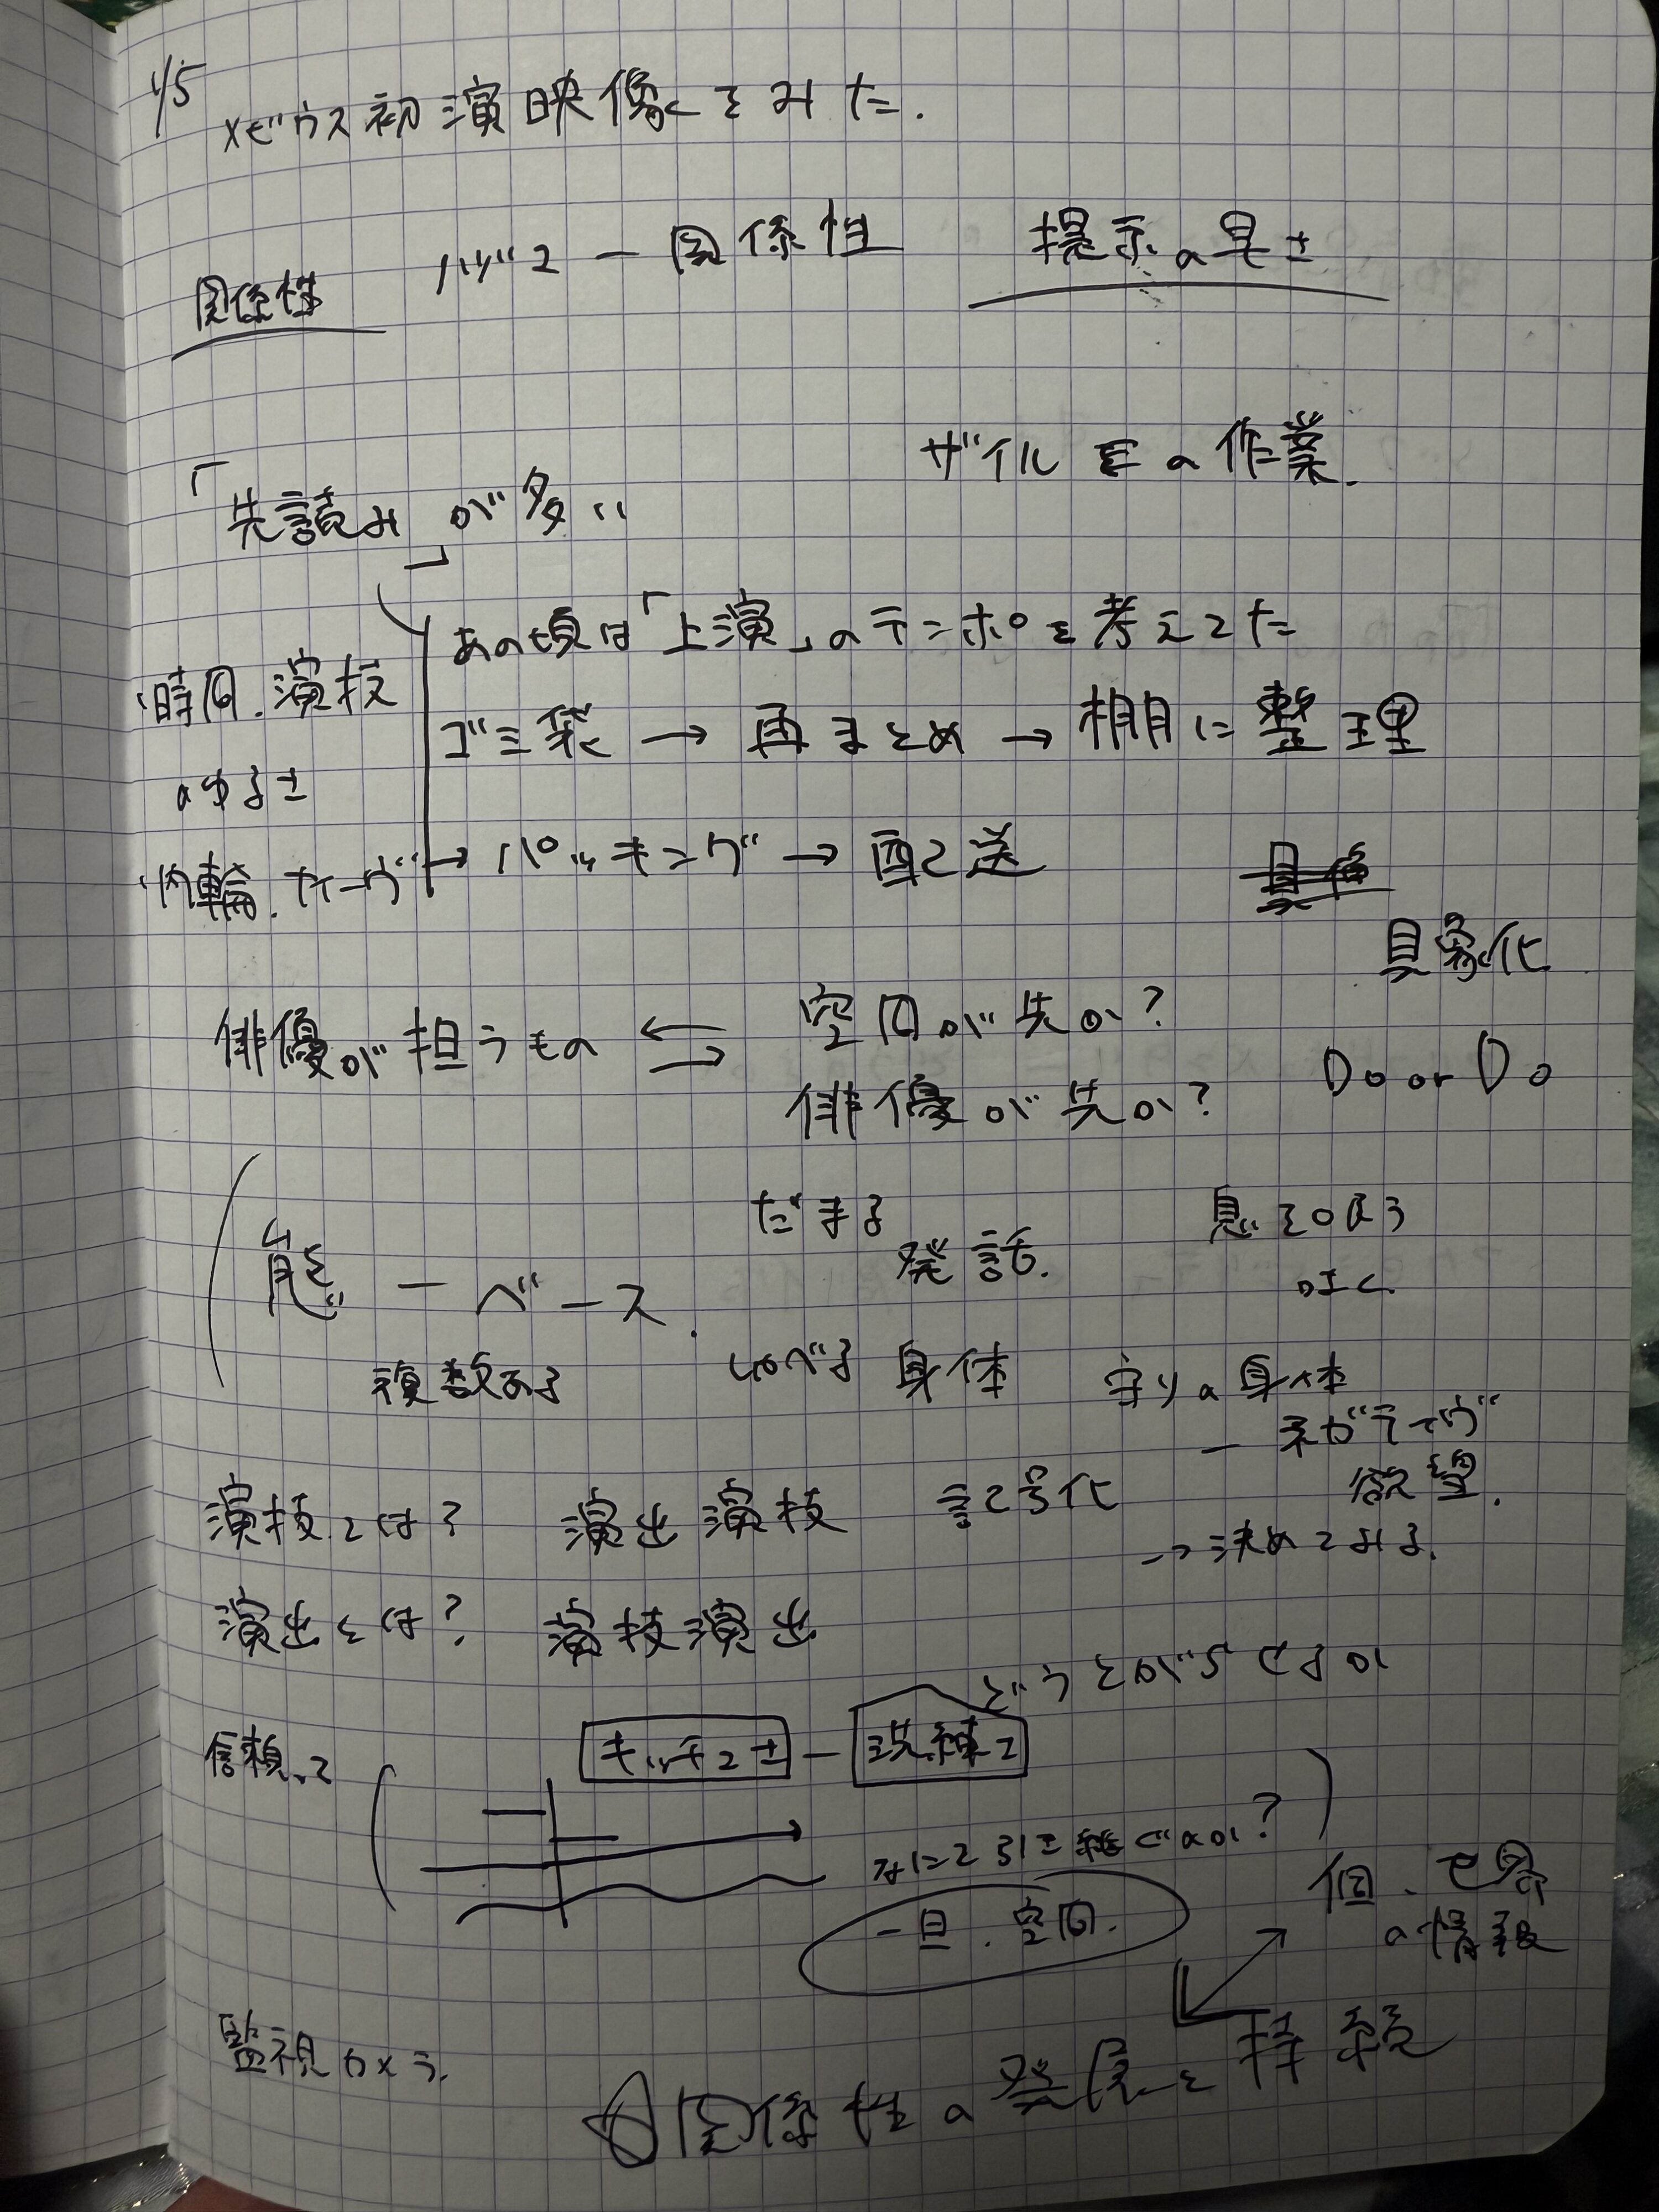 1/5
メビウス初演映像をみた.
関係性 提示の早さ
関係性
ザイル の作業.
「先読み」が多い
あの頃は「上演」のテンポを考えてた
時間.演技
ゴミ袋 → 再まとめ → 棚に整理
のゆるさ
内輪. → パッキング → 配送
具象化
俳優が担うもの ⇄ 空間が先か?
俳優が先か?
Do or Do
だまる
息を吸う
発話.
吐く
態 ー ベース.
複数ある
しゃべる 身体 守りの身体
ー ネガティヴ
欲望.
演技とは? 演出演技 記号化
→ 決めてみる.
演出とは? 演技演出
どう とがらせるか
信頼って
キッチュさ ー 洗練さ
なにを引き継ぐのか?
一旦.空間.
個.
の情報
監視カメラ.
関係性の発展と持続